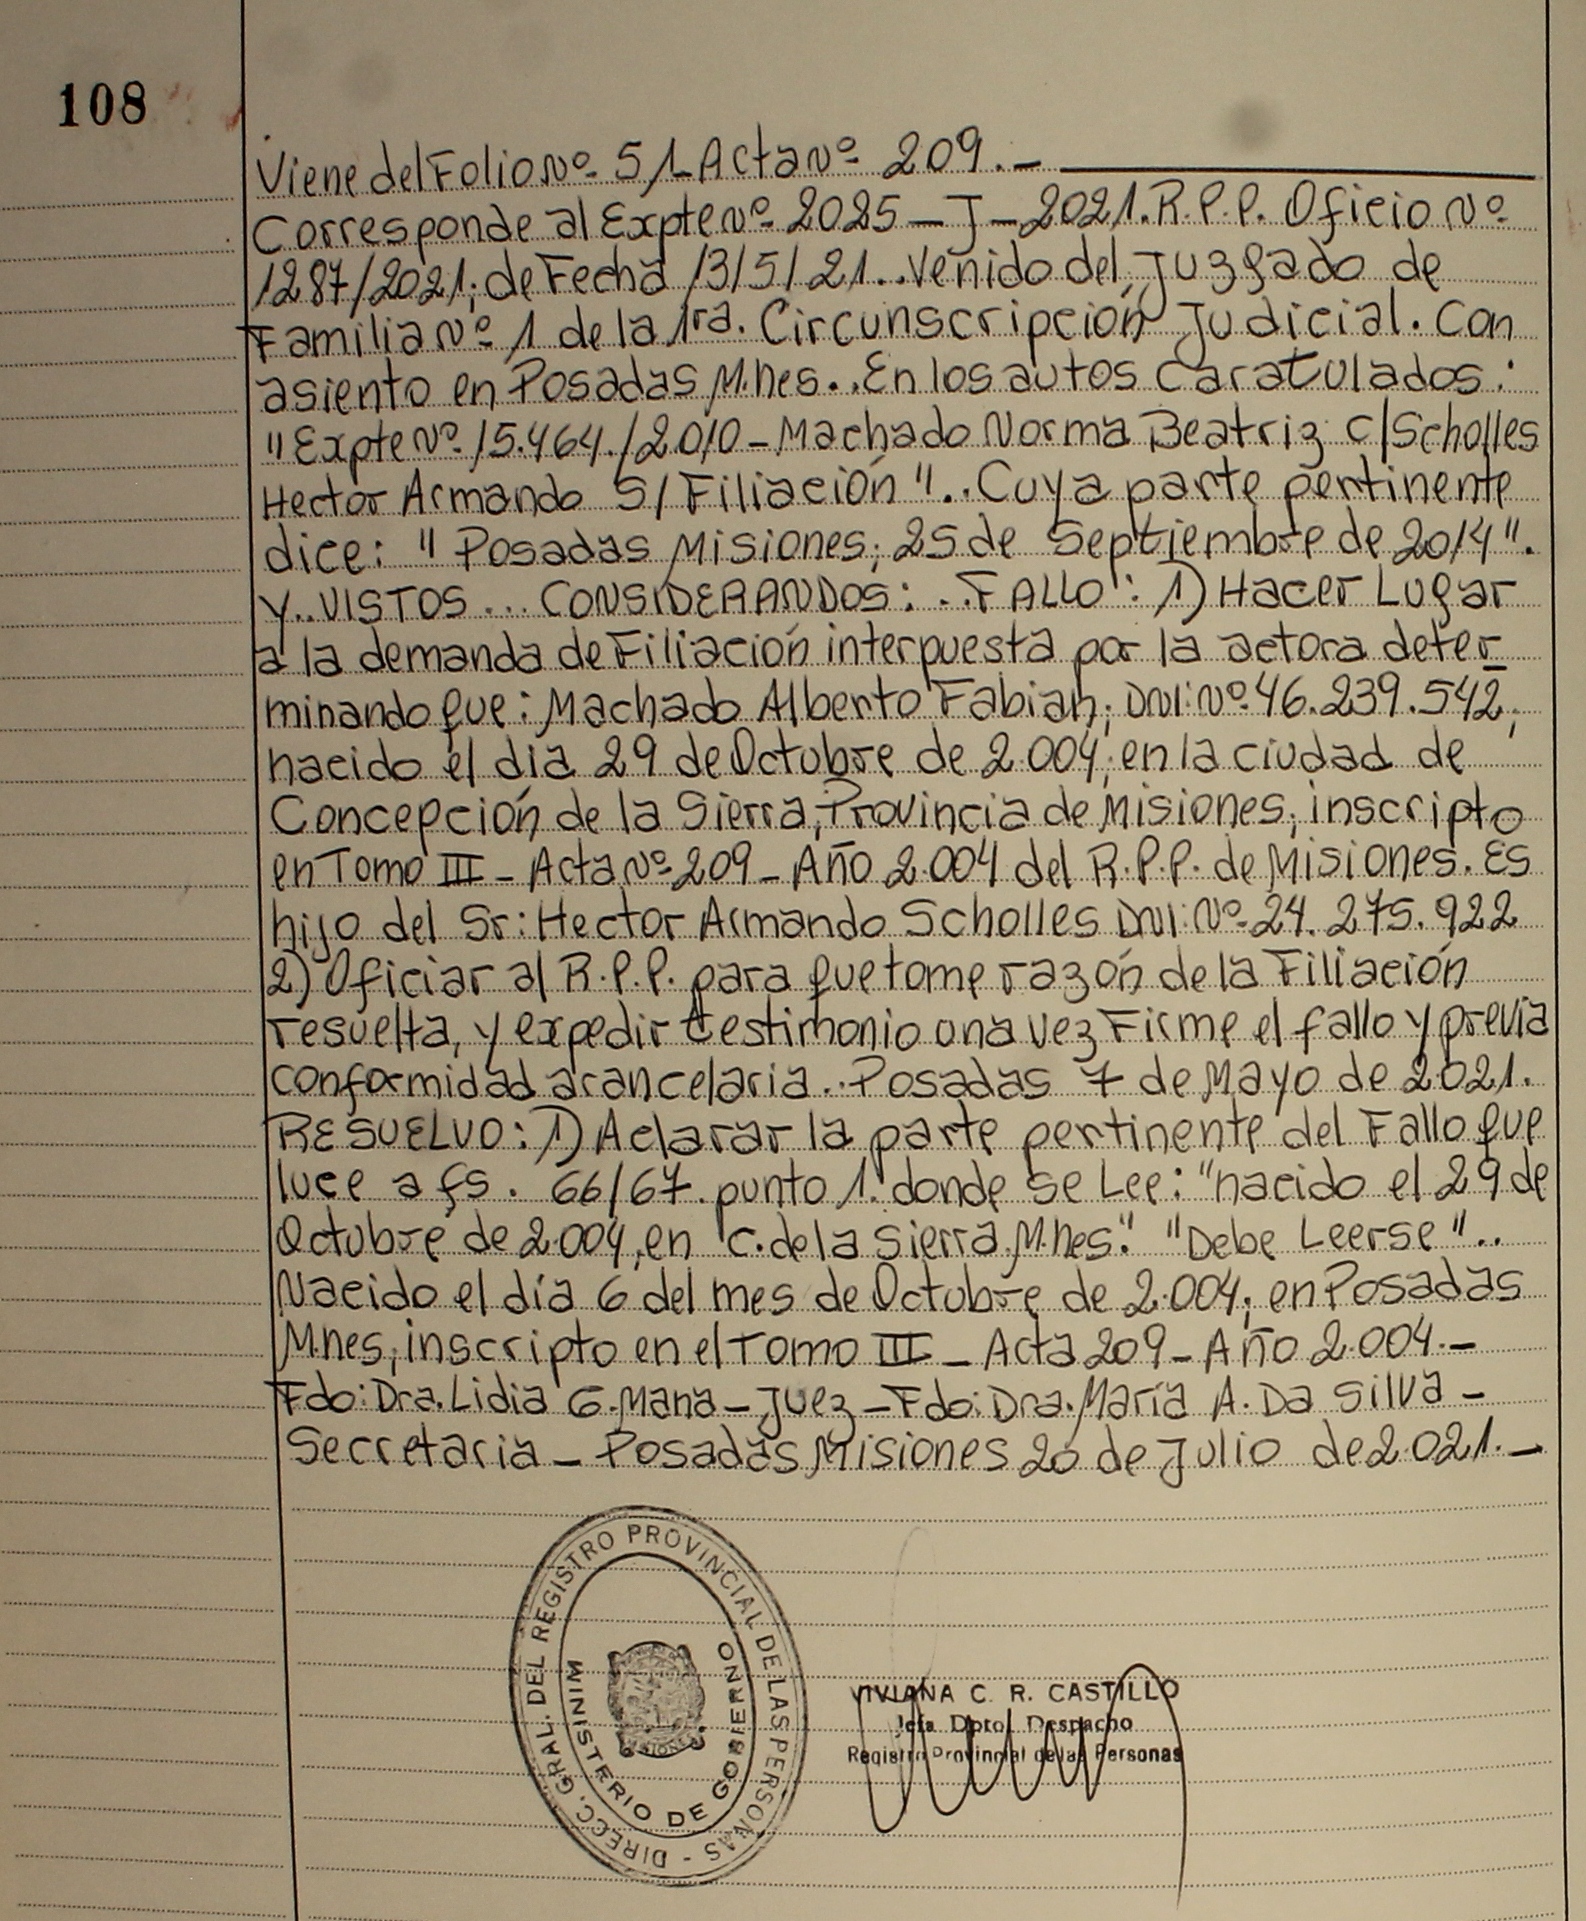 108
Viene del Folio Nº 51 Acta Nº 209.-
Corresponde al Expte Nº 2025-J-2021.R.P.P. Oficio Nº
1287/2021, de Fecha 13/5/21..Venido del Juzgado de
Familia Nº 1 de la 1ra. Circunscripción Judicial. Con
asiento en Posadas M.nes..En los autos caratulados:
"Expte Nº 15.464./2.010-Machado Norma Beatriz c/Scholles
Hector Armando S/Filiación"..Cuya parte pertinente
dice: "Posadas Misiones, 25 de Septiembre de 2014".
Y..VISTOS...CONSIDERANDOS:..FALLO: 1) Hacer Lugar
a la demanda de Filiación interpuesta por la actora deter_
minando que: Machado Alberto Fabian, DNI: Nº 46.239.542,
nacido el día 29 de Octubre de 2.004, en la ciudad de
Concepción de la Sierra, Provincia de Misiones, inscripto
en Tomo III - Acta Nº 209 - Año 2.004 del R.P.P. de Misiones. Es
hijo del Sr: Hector Armando Scholles DNI: Nº 24.275.922
2) Oficiar al R.P.P. para que tome razón de la Filiación
resuelta, y expedir testimonio una vez Firme el fallo y previa
conformidad arancelaria..Posadas 7 de Mayo de 2021.
RESUELVO: 1) Aclarar la parte pertinente del Fallo que
luce a fs. 66/67 punto 1. donde se Lee: "nacido el 29 de
Octubre de 2.004, en C. de la Sierra M.nes." "Debe Leerse"..
Nacido el día 6 del mes de Octubre de 2.004, en Posadas
M.nes, inscripto en el Tomo III - Acta 209 - Año 2.004.-
Fdo: Dra. Lidia G. Mana - Juez - Fdo: Dra. María A. Da Silva -
Secretaria - Posadas Misiones 20 de Julio de 2.021.-
DIRECC. GRAL. DEL REGISTRO PROVINCIAL DE LAS PERSONAS -
MINISTERIO DE GOBIERNO
VIVIANA C. R. CASTILLO
Jefa Dpto. Despacho
Registro Provincial de las Personas